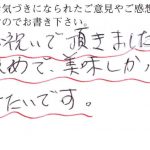 気づきになられたご意見やご感想
のでお書き下さい。
祝いで頂きました
めて、美味しか
たいです。